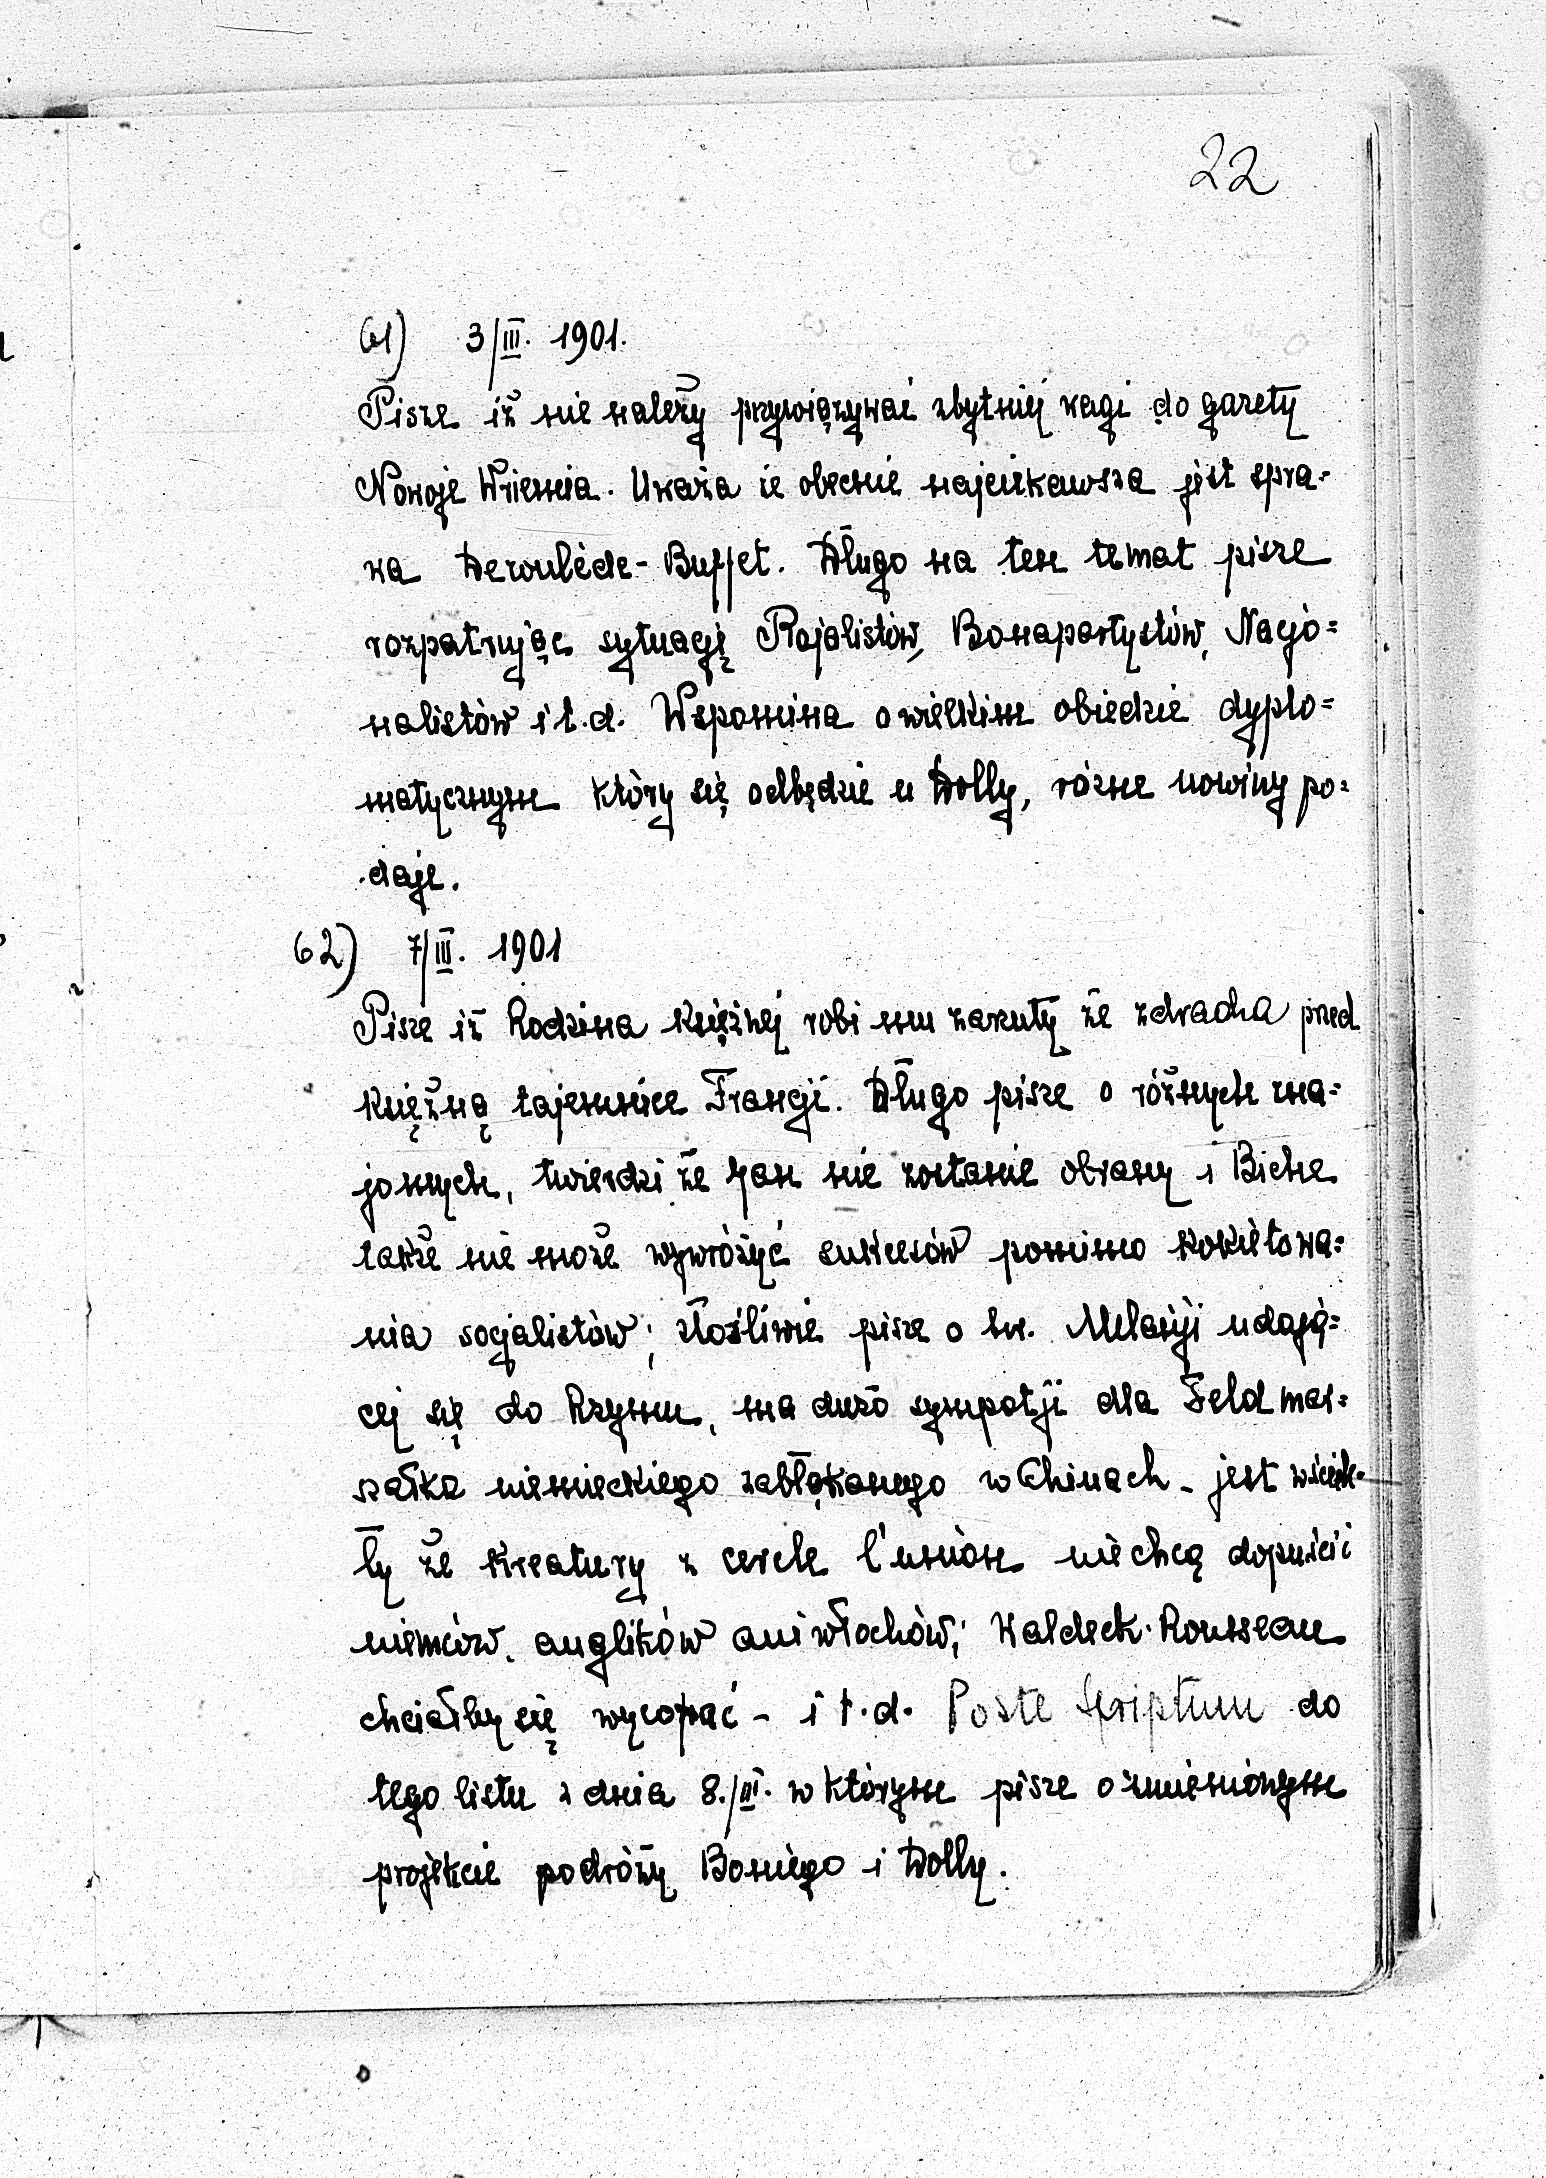 22
61) 3/III. 1901.
Pisze iż nie należy przywiązywać zbytniej wagi do gazety
Nowoje Wriemia. Uważa że obecnie najciekawsza jest spra=
wa Deroulède-Buffet. Długo na ten temat pisze
rozpatrując sytuację Rojalistów, Bonapartystów, Nacjo=
nalistów i t.d. Wspomina o wielkim obiedzie dyplo=
matycznym który się odbędzie u Dolly, różne nowiny po=
daje.
62) 7/III. 1901
Pisze iż Rodzina księżnej robi mu zarzuty że zdradza przed
księżną tajemnice Francji. Długo pisze o różnych zna=
jomych, twierdzi że Jan nie zostanie obrany i Biche
także nie może wywróżyć sukcesów pomimo kokietowa=
nia socjalistów; złośliwie pisze o hr. Melanji udają=
cej się do Rzymu, ma dużo sympatji dla Feldmar=
szałka niemieckiego zabłąkanego w Chinach - jest wściek=
ły że kreatury z cercle l'union nie chcą dopuścić
niemców, anglików ani włochów; Waldeck-Rousseau
chciałby się wycofać - i t.d. Poste Scriptum do
tego listu z dnia 8./III. w którym pisze o zmienionym
projekcie podróży Boniego i Dolly.